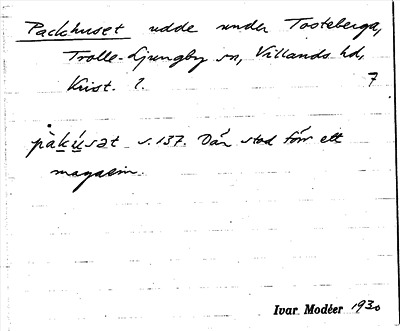 Packhuset udde under Tosteberga,
Trolle-Ljungby sn, Villands hd,
Krist. l.
7
pàkúsət s. 137. Där stod förr ett
magasin.
Ivar Modéer 1930